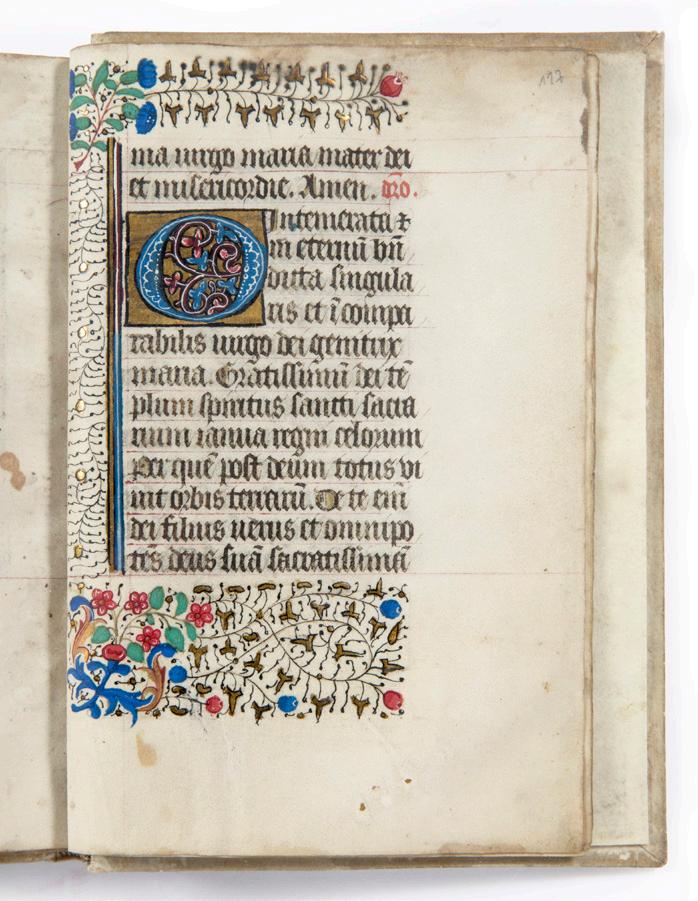 117
ma uirgo maria mater dei
et misericordie. Amen. oro.
O Intemerata et
in eternū bn̄
dicta singula
ris et īcompa
rabilis uirgo dei genitrix
maria. Gratissimū dei tē
plum spiritus sancti sacra
rium ianua regni celorum
Per quē post deum totus vi
uit orbis terrarū. De te eni
dei filius uerus et omnipo
tēs deus suā sacratissimā